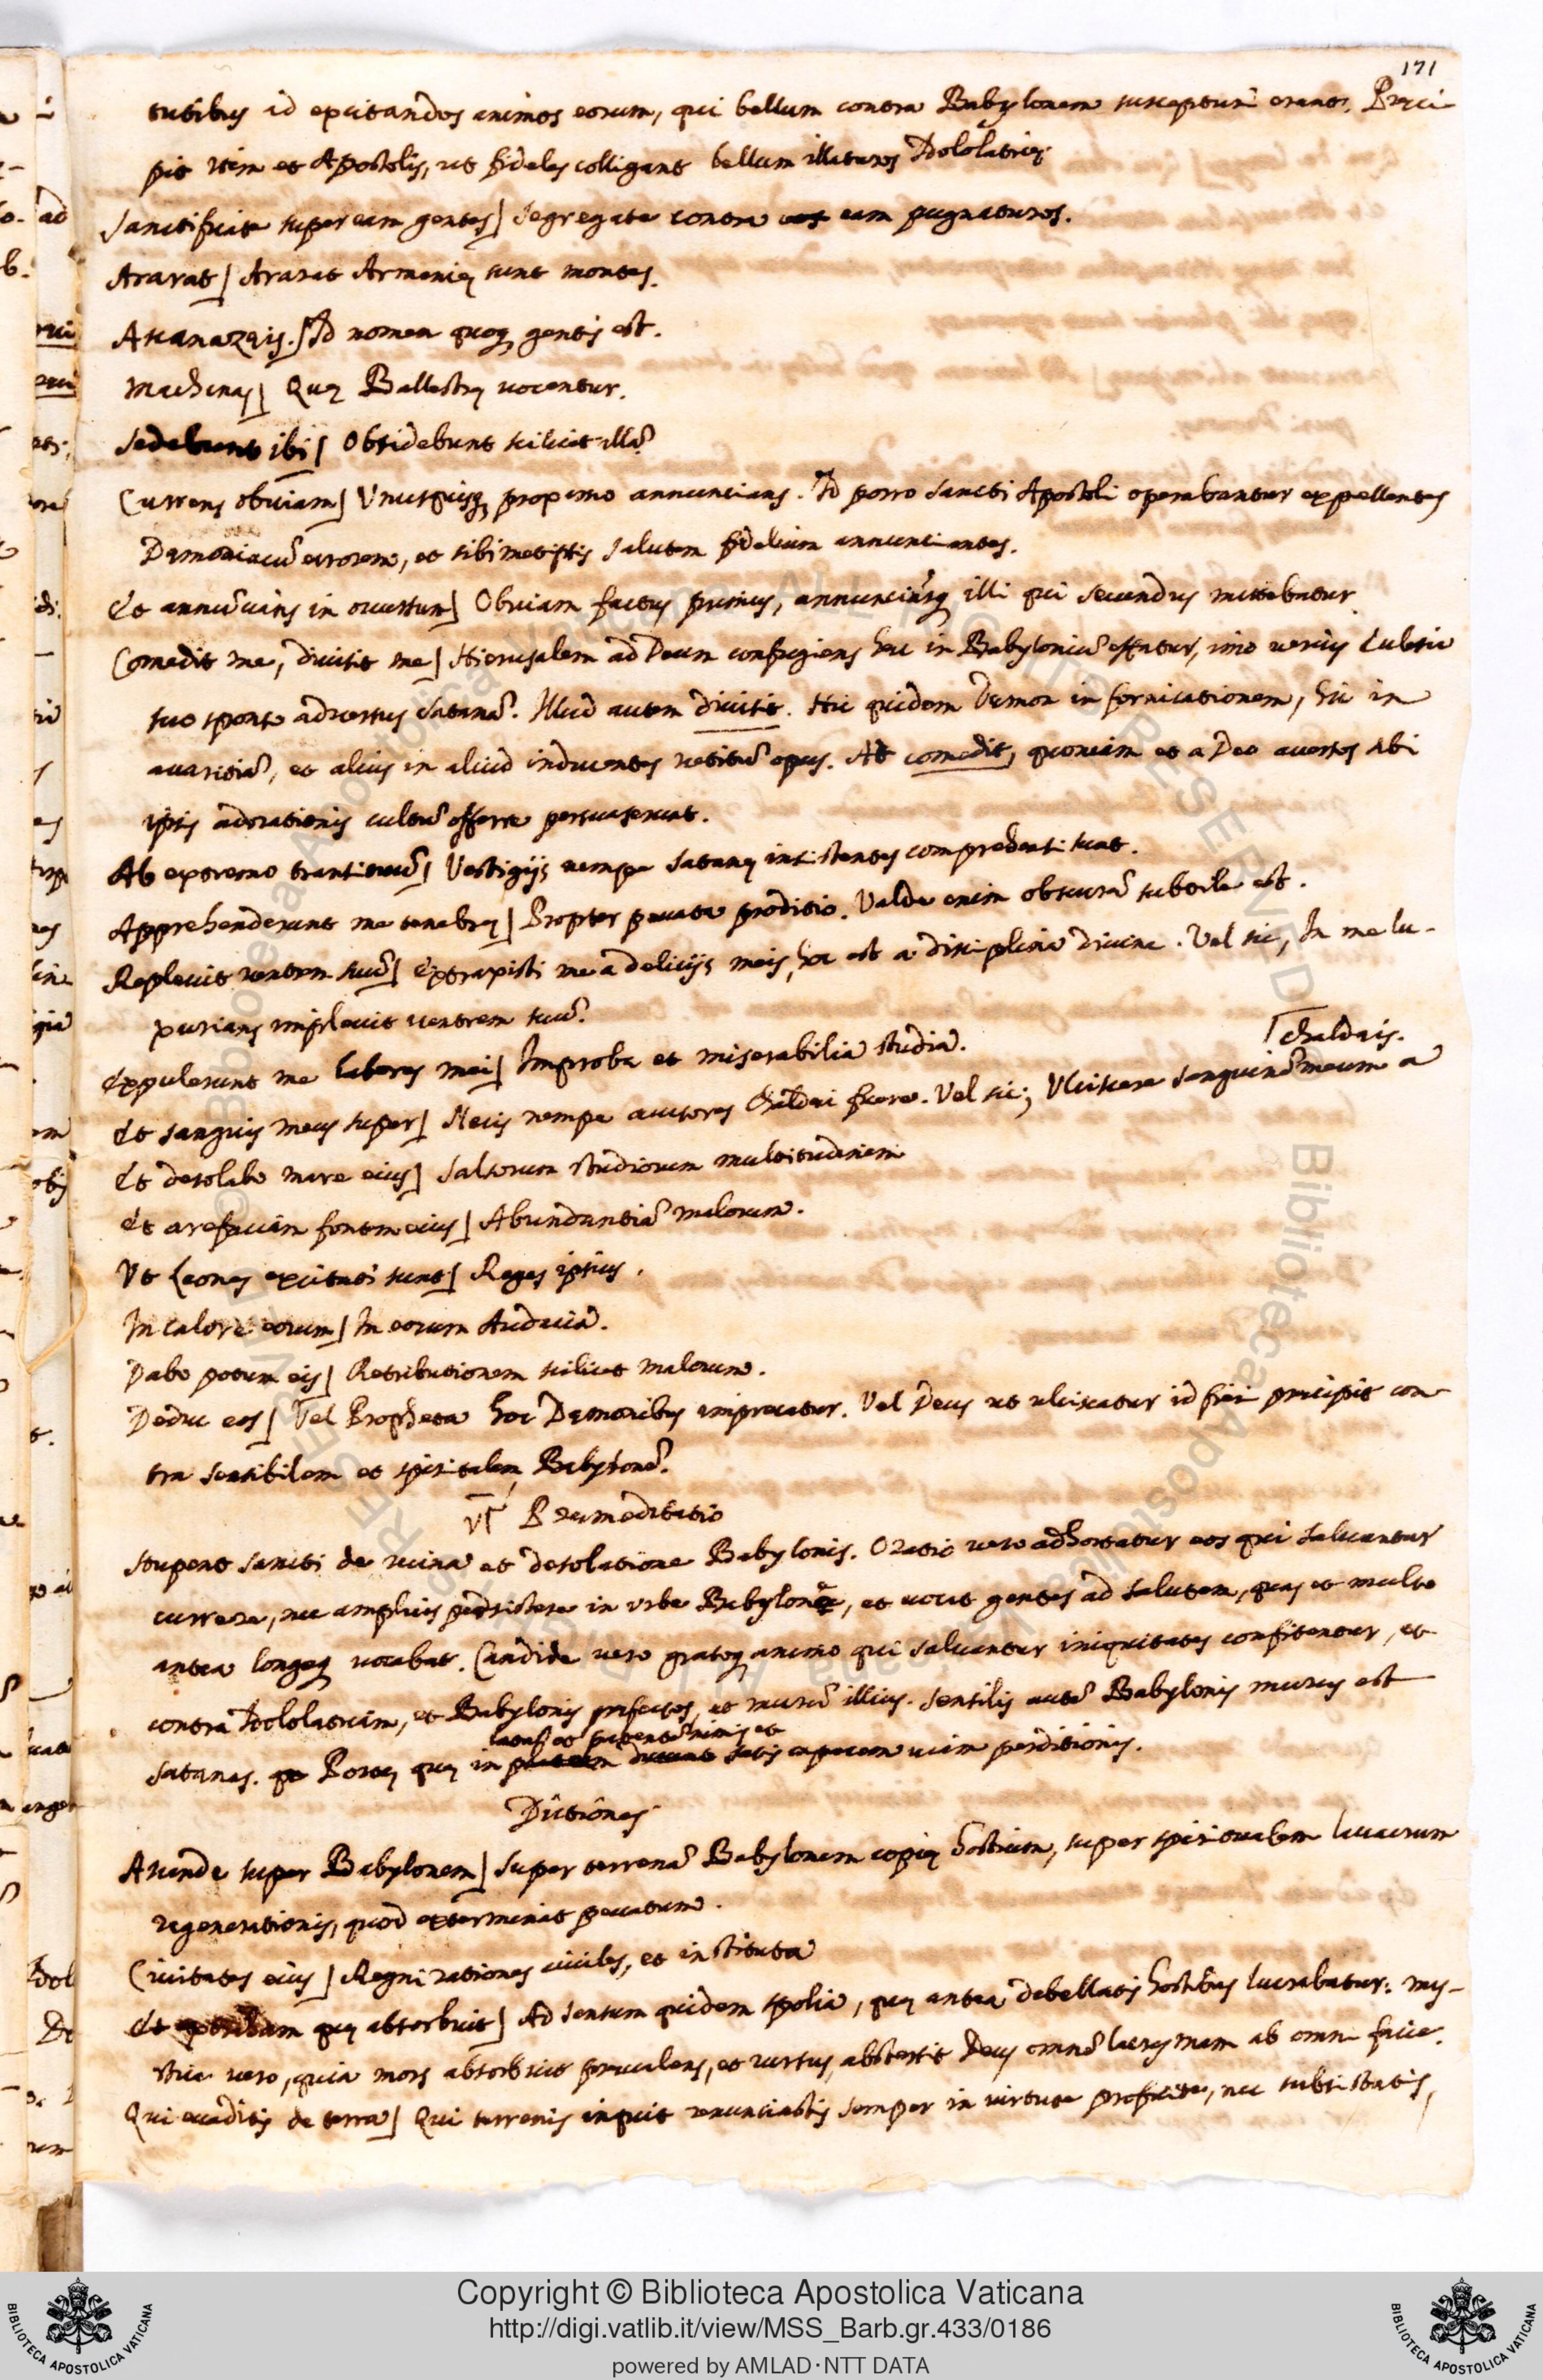 171
tutibus id excitandos animos eorum, qui bellum contra Babylonem suscepturi erant. Preci-
pit item et Apostolis, ut fideles colligant bellum illaturos Idololatrię.
Sanctificate super eam gentes] Segregate contra eam pugnaturos.
Ararat] Ararat Armenię sunt montes.
Ascanazęis.] Id nomen quoq gentis est.
Machinas] Quę Ballestrę vocantur.
Sedebunt ibi] Obsidebunt scilicet illā
Currens obviam] Unusquisq proximo annuncians. Id porro Sancti Apostoli operabantur expellentes
Dęmoniacū errorem, et sibimetipsis salutem fidelium annunciantes.
Et annūcians in occursum] Obviam factus primus, annunciās illi qui secundus mittebatur.
Comedit me, divisit me] Hierusalem ad Deum confugiens hęc in Babyloniū effatur, imo verius
suo sponte adversus Satanā. Illud autem divisit. Hic quidem Dęmon in fornicationem, hic in
avaritiā, et alius in aliud inducentes vetitū opus. At comedit, quoniam et a Deo aversos sibi
ipsis adorationis cultū offerre persuaserunt.
Ab extremo transituū] Vestigijs nempe Satanę insistentes comprędati sunt.
Apprehenderunt me tenebrę] Propter peccata proditio. Valde enim obscurā subtile est.
Replevit ventrem suū] Extraxisti me a delicijs meis, hoc est a disciplina divina. Vel sic, In me lu-
xurians implevit ventrem suū.
Expulerunt me labores mei] Improba et miserabilia studia.
Chaldęis.
Et sanguis meus super] Necis nempe auctores Chaldęi fuere. Vel sic; Ulciscere sanguinē meum a
Et desolabo mare eius] Salsorum studiorum multitudinem
Et arefaciam fontem eius] Abundantiā malorum.
Ut Leones excitati sunt] Reges ipsius.
In calore eorum] In eorum Audacia.
Dabo potum eis] Retributionem scilicet malorum.
Deduc eos] Vel Propheta hoc Dęmonibus imprecatur. Vel Deus ut ulciscatur id fieri pręcipit con-
tra sensibilem et spiritalem Babylonē.
Pręmeditatio
Stupent sancti de ruina et desolatione Babylonis. Oratio vero adhortatur eos qui salvantur
currere, nec amplius persistere in urbe Babylone, et vocat gentes ad salutem, quas et multo
antea longeq vocabat. Candide vero gratoq animo qui salvantur iniquitates confitentur, et
contra Idololatriam, et Babylonis pręfectos, et murū illius. Sensilis autē Babylonis murus est
latas et patentē nimis et
Satanas. Portę quę in satis capacem viam perditionis.
Dictiones.
Ascende super Babylonem] Super terrenā Babylonem copię hostium, super spiritualem lavacrum
regenerationis, quod exterminat peccatum.
Civitates eius] Regni rationes civiles, et instituta
Et quę absorbuit] Ad sensum quidem spolia, quę antea debellatis hostibus lucrabatur: mys-
tice vero, quia mors absorbuit pręvalens, et rursus abstersit Deus omnē lacrymam ab omni facie.
Qui evaditis de terra] Qui terrenis inquit renunciastis semper in virtute proficite, nec subsistatis,
Copyright © Biblioteca Apostolica Vaticana
http://digi.vatlib.it/view/MSS_Barb.gr.433/0186
powered by AMLAD·NTT DATA
BIBLIOTECA APOSTOLICA VATICANA
BIBLIOTECA APOSTOLICA VATICANA